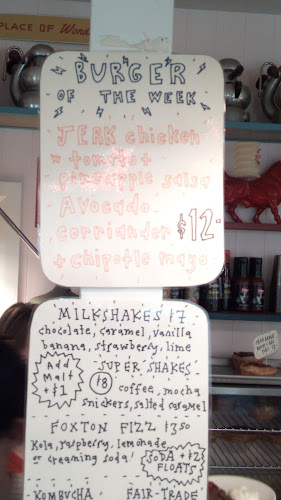 PLACE OF WINNING
BURGER
OF THE WEEK
JERK chicken
w tomato +
pineapple salsa
Avocado
corriander $12-
+ chipotle mayo
MILKSHAKES $7
chocolate, caramel, vanilla
banana, strawberry, lime
Add
Malt
+$1
SUPER SHAKES
$8 coffee, mocha
snickers, salted caramel
FOXTON FIZZ $3.50
Kola, raspberry, lemonade
or creaming soda!
SODA +$2
FLOATS
KOMBUCHA
FAIR-TRADE